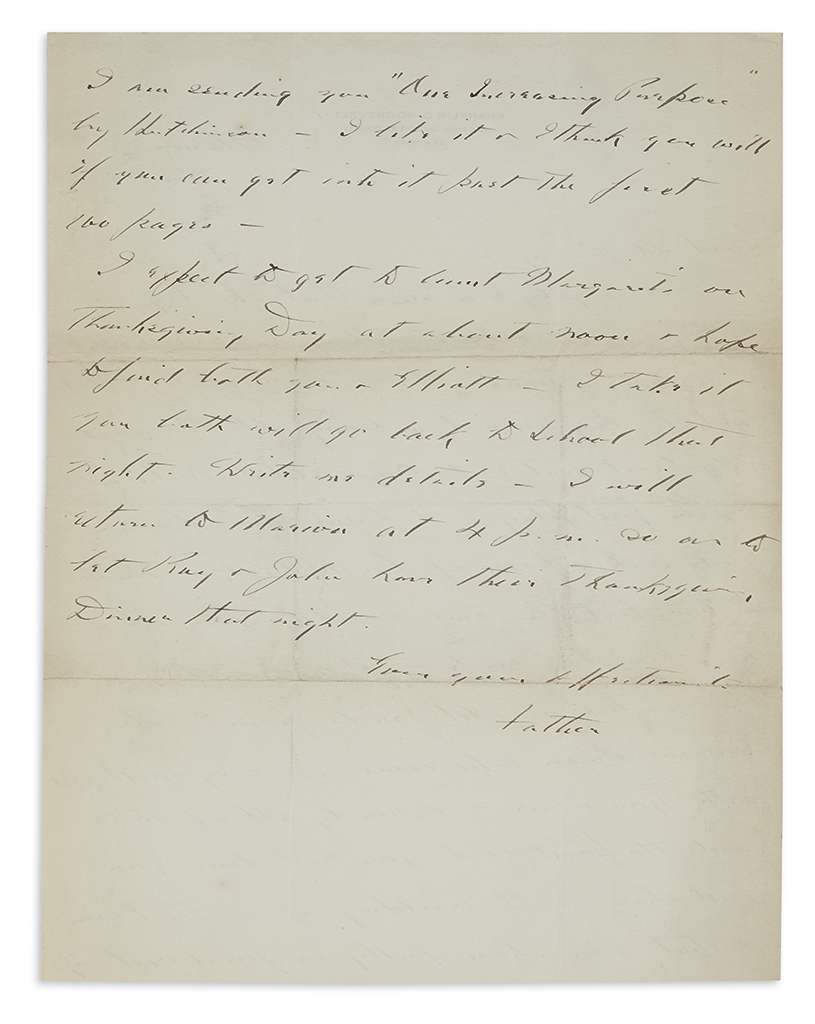 I am sending you "One Increasing Purpose"
by Hutchinson – I like it & I think you will
if you can get into it past the first
100 pages –
I expect to get to Aunt Margaret's on
Thanksgiving Day at about noon & hope
to find both you & Elliott – I take it
you both will go back to School that
night. Write me details – I will
return to Marion at 4 p.m. so as to
let Kay & John have their Thanksgiving
Dinner that night.
Ever your affectionate
Father